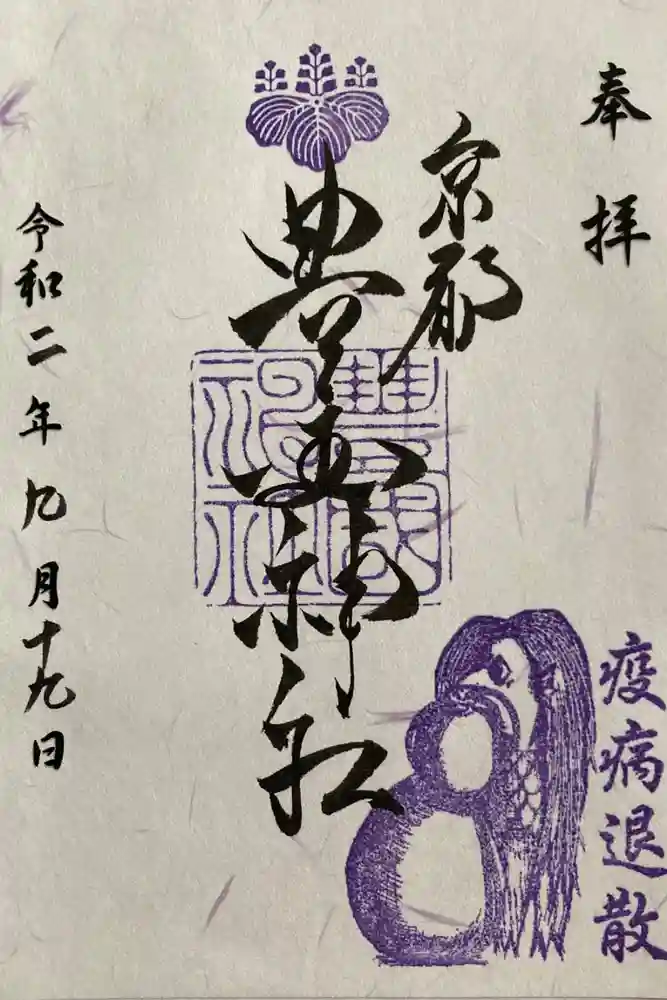 奉拝
京都
豊国神社
豊國神社
疫病退散
令和二年九月十九日